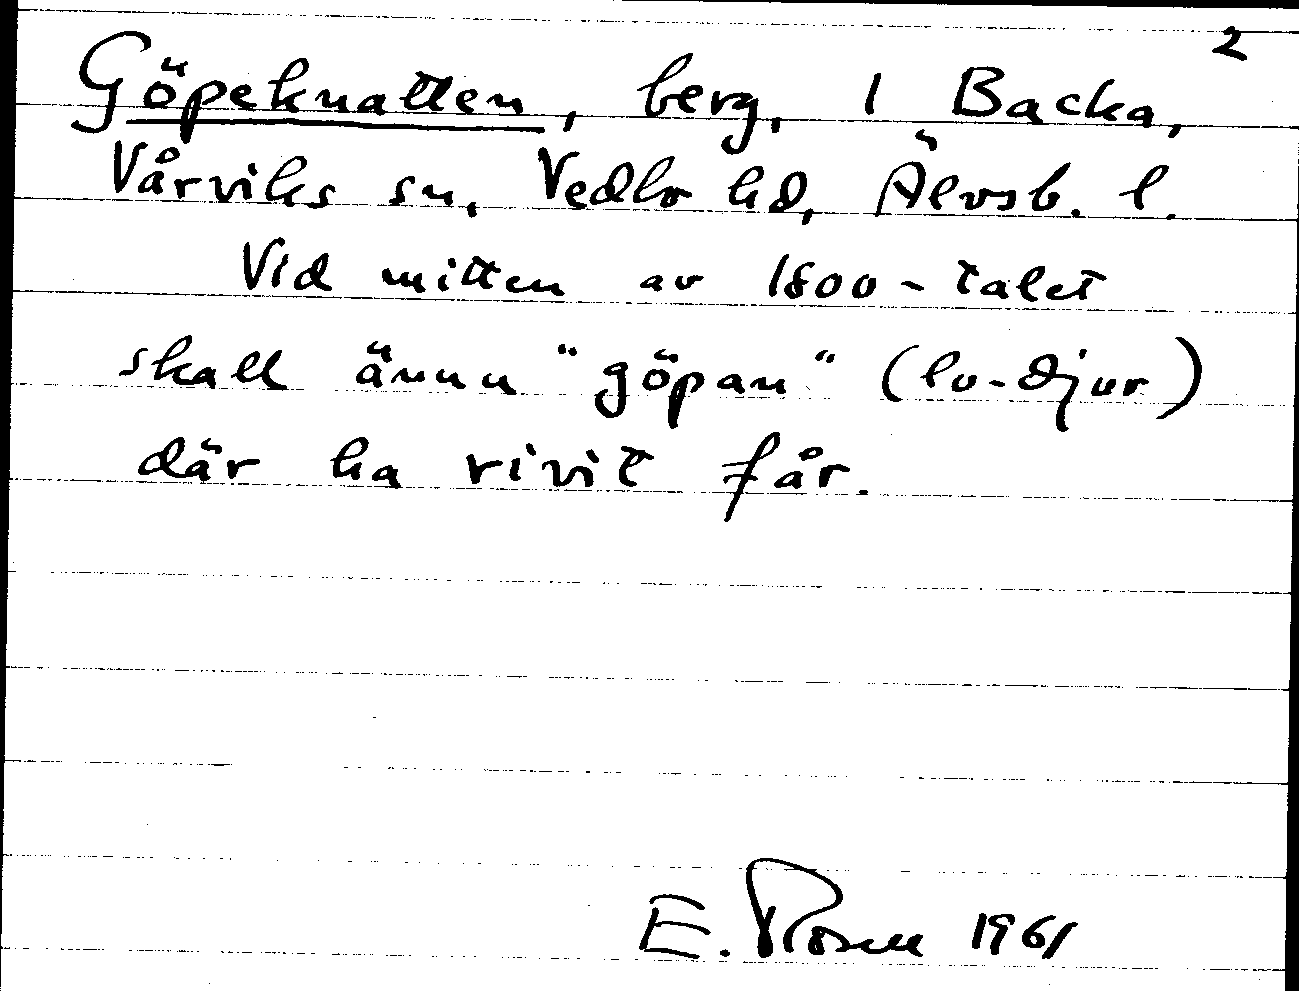 2
Göpeknatten, berg, 1 Backa,
Vårviks sn, Vedbo hd, Älvsb. l.
Vid mitten av 1800-talet
skall ännu "göpan" (lo-djur)
där ha rivit får.
E. Rosell 1961